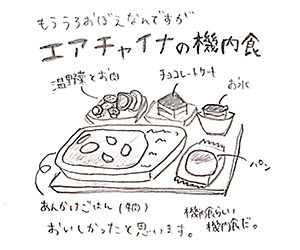 もううろおぼえなんですが
エアチャイナの機内食
温野菜とお肉
チョコレートケーキ
お水
パン
あんかけごはん(牛肉)
機内食らしい
機内食だ。
おいしかったと思います。